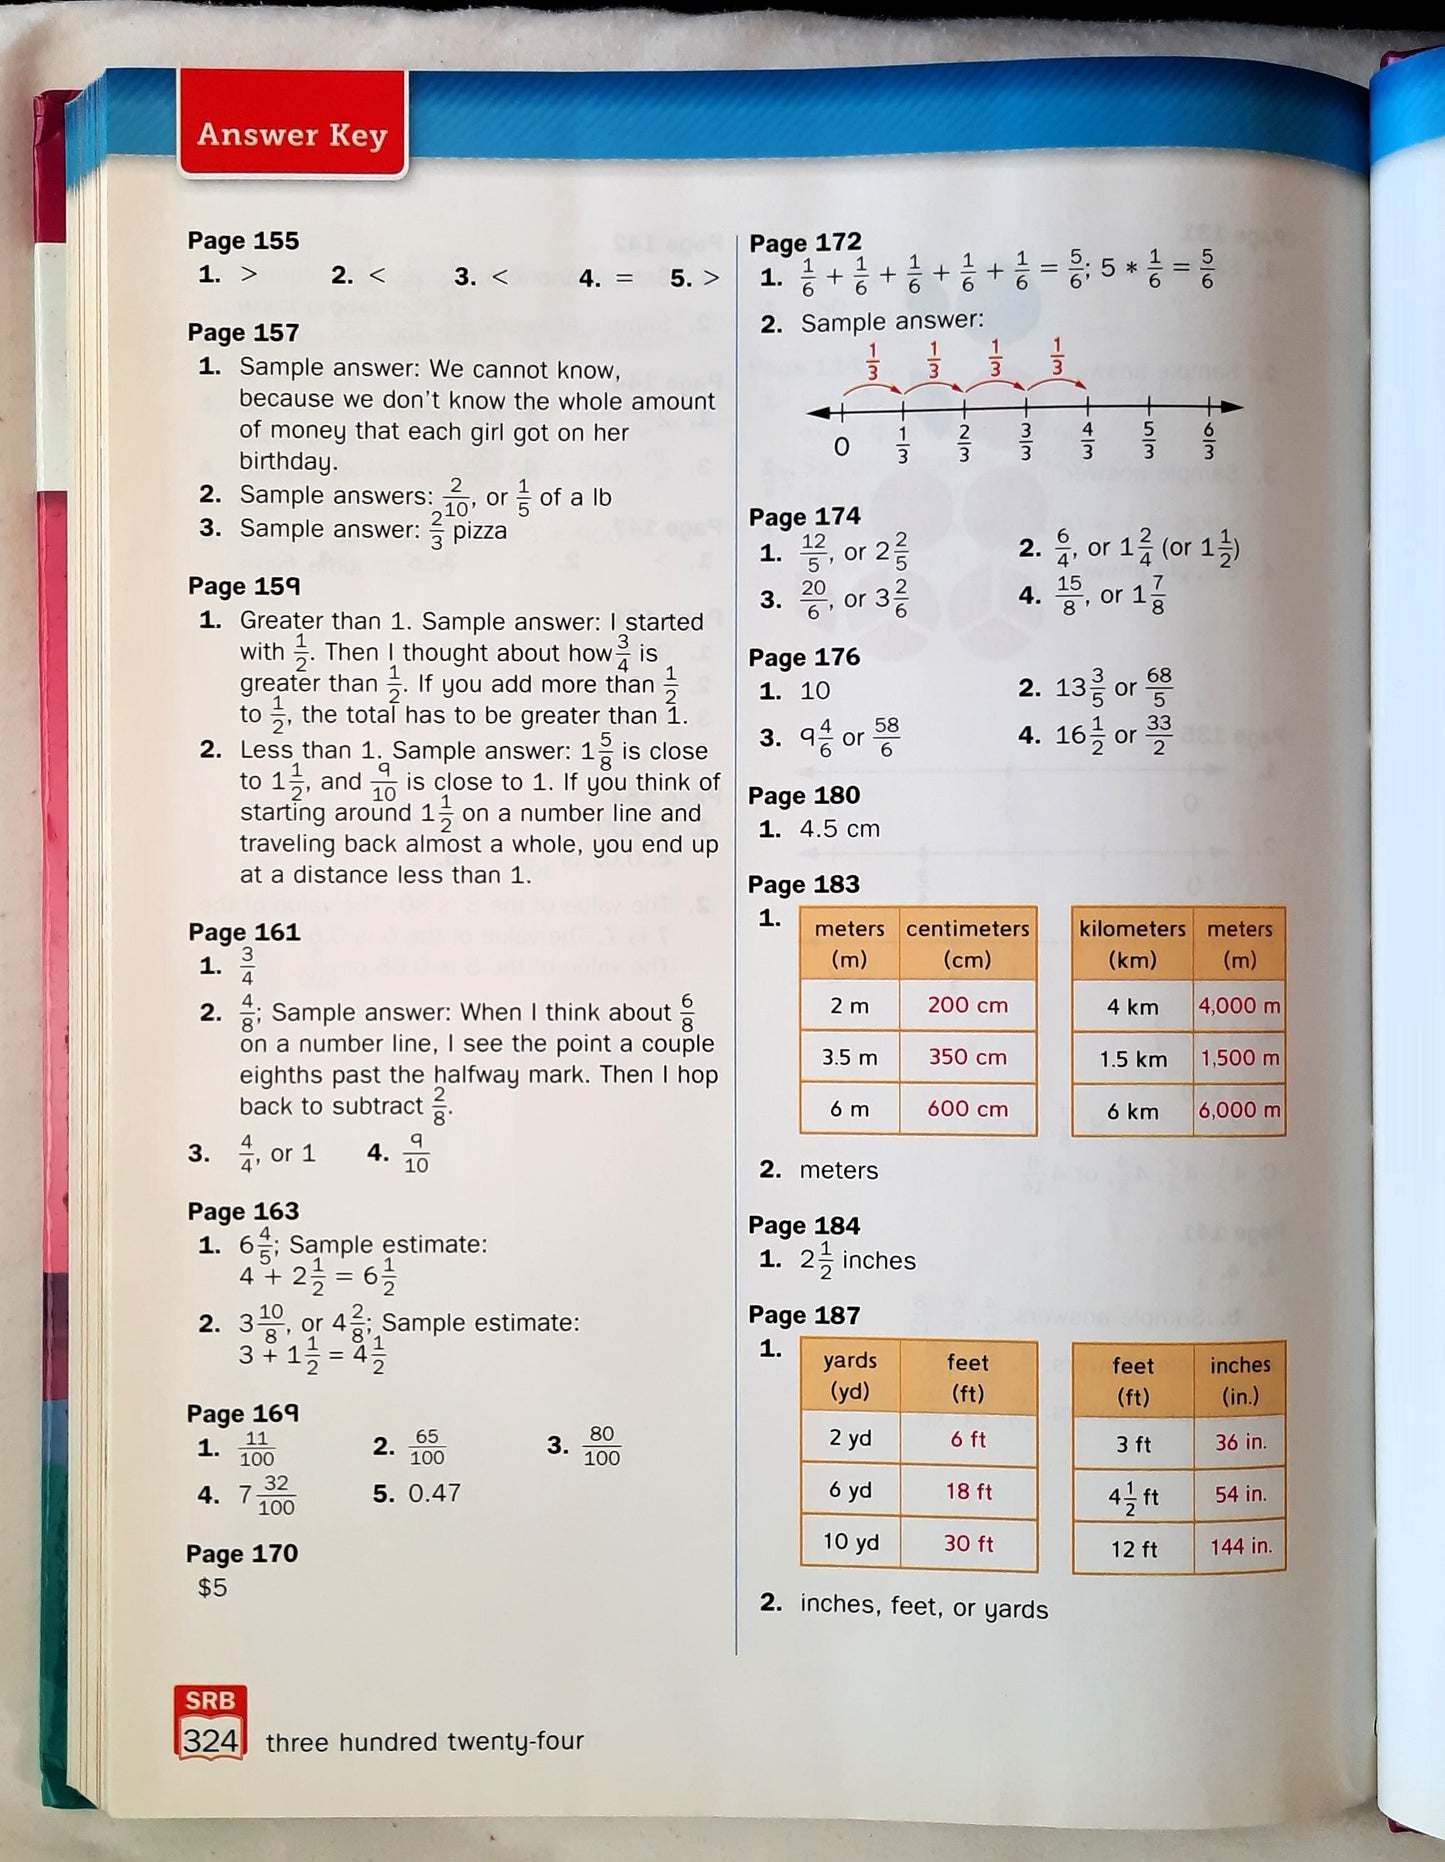 Answer Key
Page 155
1. > 2. < 3. < 4. = 5. >
Page 157
1. Sample answer: We cannot know,
because we don't know the whole amount
of money that each girl got on her
birthday.
2. Sample answers: 2/10, or 1/5 of a lb
3. Sample answer: 2/3 pizza
Page 159
1. Greater than 1. Sample answer: I started
with 1/2. Then I thought about how 3/4 is
greater than 1/2. If you add more than 1/2
to 1/2, the total has to be greater than 1.
2. Less than 1. Sample answer: 1 5/8 is close
to 1 1/2, and 9/10 is close to 1. If you think of
starting around 1 1/2 on a number line and
traveling back almost a whole, you end up
at a distance less than 1.
Page 161
1. 3/4
2. 4/8; Sample answer: When I think about 6/8
on a number line, I see the point a couple
eighths past the halfway mark. Then I hop
back to subtract 2/8.
3. 4/4, or 1 4. 9/10
Page 163
1. 6 4/5; Sample estimate:
4 + 2 1/2 = 6 1/2
2. 3 10/8, or 4 2/8; Sample estimate:
3 + 1 1/2 = 4 1/2
Page 169
1. 11/100 2. 65/100 3. 80/100
4. 7 32/100 5. 0.47
Page 170
$5
Page 172
1. 1/6 + 1/6 + 1/6 + 1/6 + 1/6 = 5/6; 5 * 1/6 = 5/6
2. Sample answer:
1/3 1/3 1/3 1/3
0 1/3 2/3 3/3 4/3 5/3 6/3
Page 174
1. 12/5, or 2 2/5 2. 6/4, or 1 2/4 (or 1 1/2)
3. 20/6, or 3 2/6 4. 15/8, or 1 7/8
Page 176
1. 10 2. 13 3/5 or 68/5
3. 9 4/6 or 58/6 4. 16 1/2 or 33/2
Page 180
1. 4.5 cm
Page 183
1.
meters centimeters
(m) (cm)
2 m 200 cm
3.5 m 350 cm
6 m 600 cm
kilometers meters
(km) (m)
4 km 4,000 m
1.5 km 1,500 m
6 km 6,000 m
2. meters
Page 184
1. 2 1/2 inches
Page 187
1.
yards feet
(yd) (ft)
2 yd 6 ft
6 yd 18 ft
10 yd 30 ft
feet inches
(ft) (in.)
3 ft 36 in.
4 1/2 ft 54 in.
12 ft 144 in.
2. inches, feet, or yards
SRB
324 three hundred twenty-four